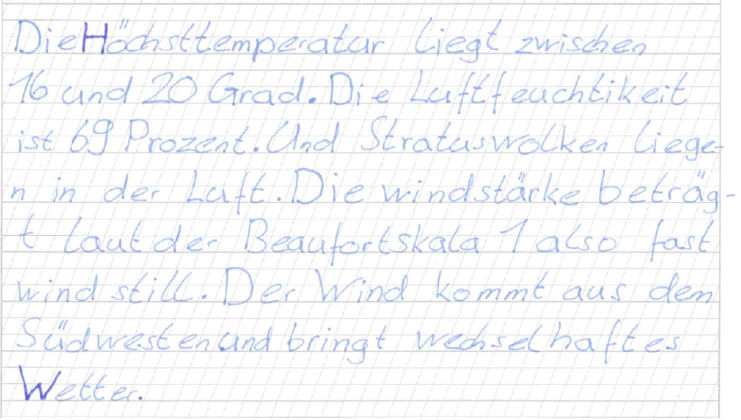 Die Höchsttemperatur liegt zwischen
16 und 20 Grad. Die Luftfeuchtikeit
ist 69 Prozent. Und Stratuswolken liege-
n in der Luft. Die windstärke beträg-
t laut der Beaufortskala 1 also fast
wind still. Der Wind kommt aus dem
Südwesten und bringt wechselhaftes
Wetter.